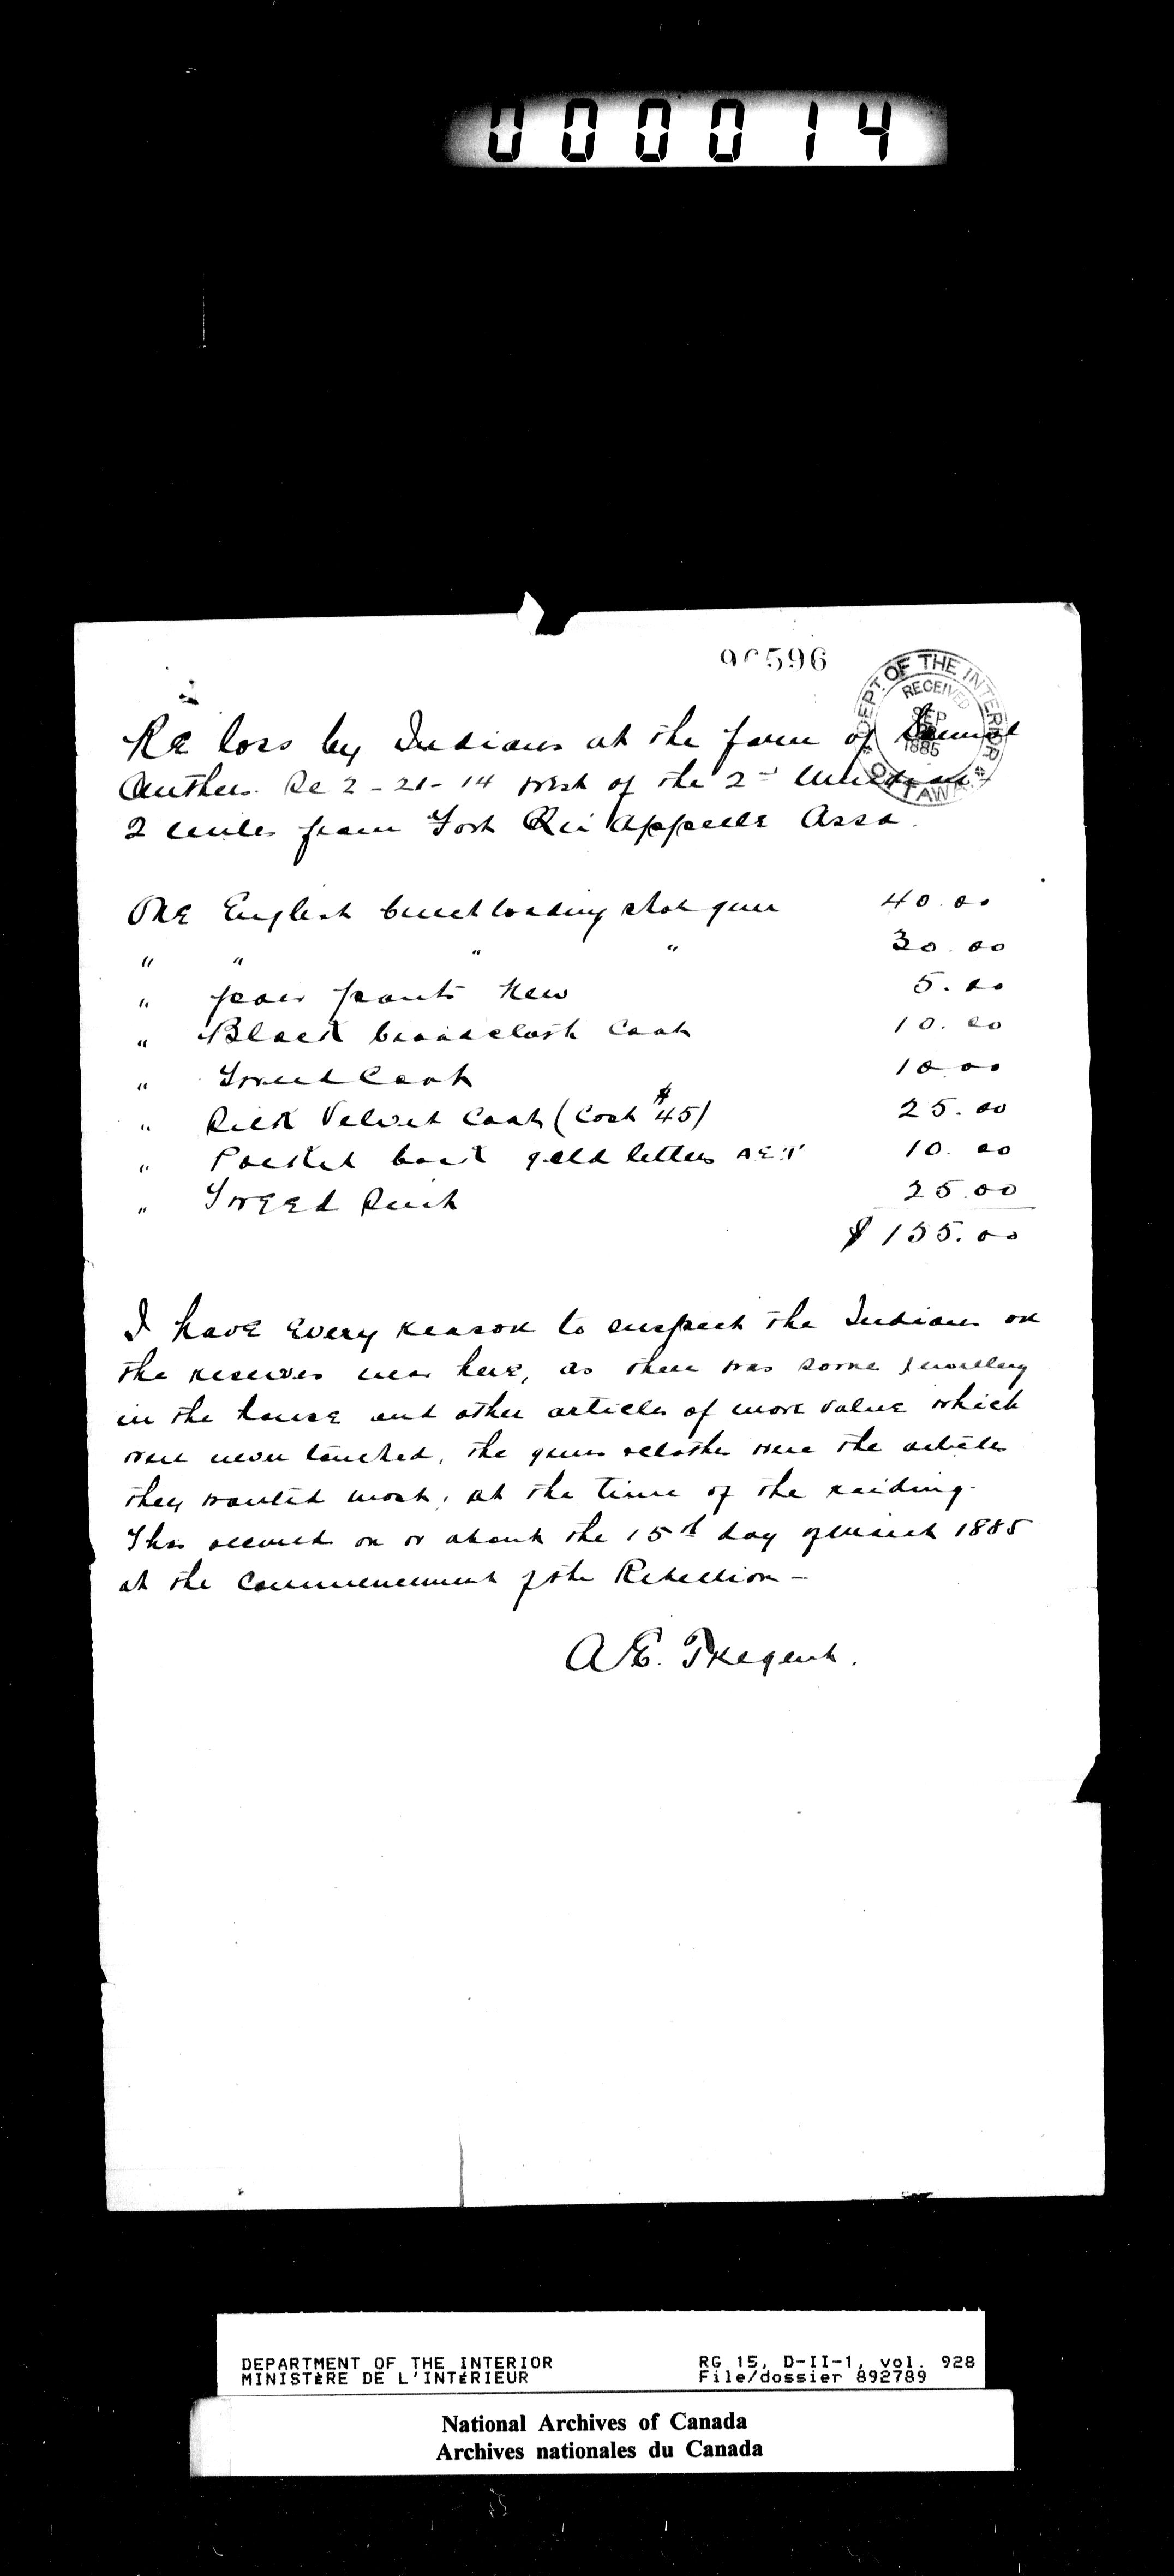 000014
96596
DEPT OF THE INTERIOR
RECEIVED
SEP
1885
OTTAWA
Re loss by Indians at the farm of
Se 2 - 21 - 14 West of the 2nd Meridian
2 miles from Fort Qu'Appelle Assa.
One English breechloading shot gun 40.00
" " " " 30.00
" pair pants New 5.00
" Black broadcloth Coat 10.00
" Tweed Coat 10.00
" Silk Velvet Coat (Cost $45) 25.00
" Pocket book gold letters AET 10.00
" Tweed Suit 25.00
$155.00
I have every reason to suspect the Indians on
the reserves near here, as there was some jewellery
in the house and other articles of more value which
were never touched, the guns & clothes were the articles
they wanted most, at the time of the raiding.
This occured on or about the 15th day of March 1885
at the Commencement of the Rebellion -
A.E. Tregent.
DEPARTMENT OF THE INTERIOR RG 15, D-II-1, vol. 928
MINISTÈRE DE L'INTÉRIEUR File/dossier 892789
National Archives of Canada
Archives nationales du Canada